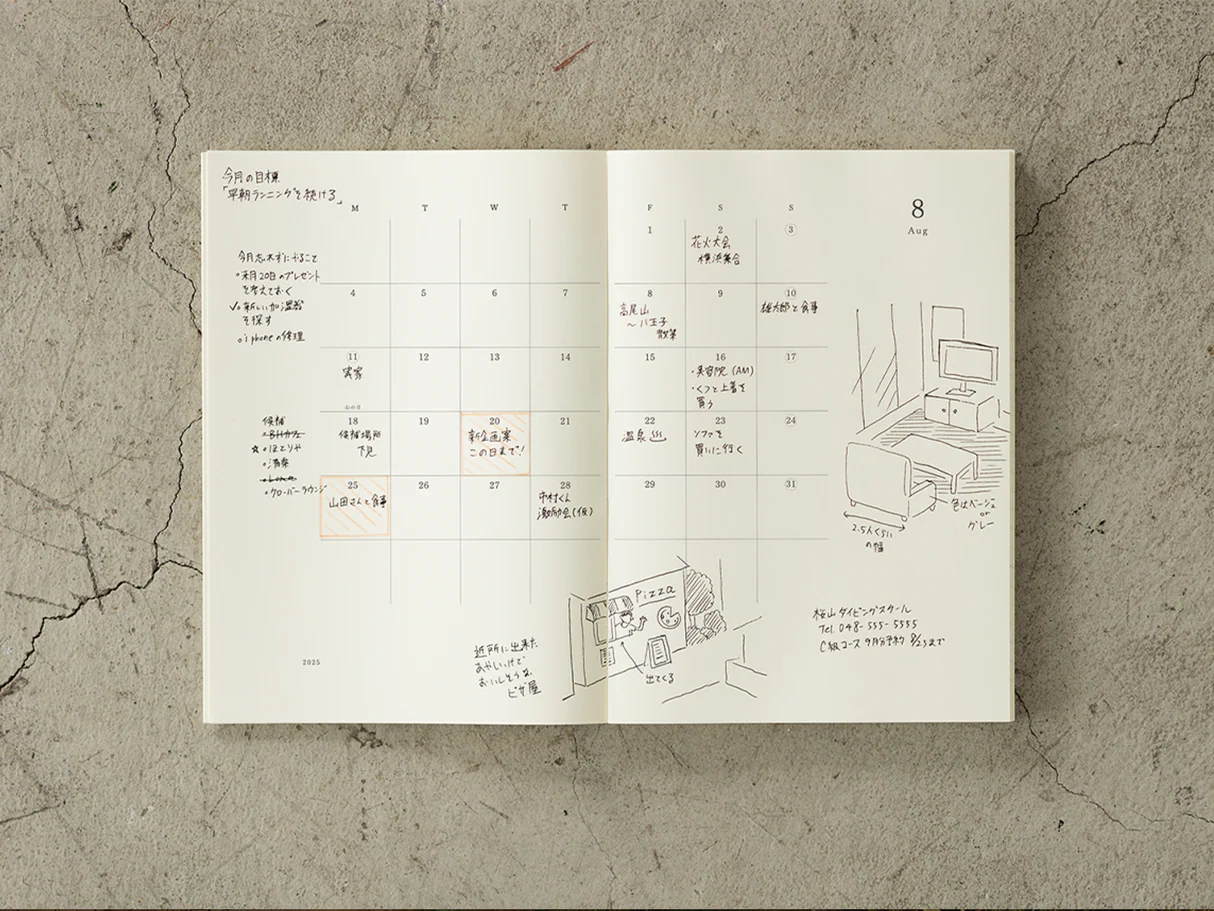 今月の目標
「早朝ランニングを続ける」
M T W T F S S
8
Aug
1 2 3
花火大会
横浜集合
今月忘れずにやること
○来月20日のプレゼント
を考えておく
✓○新しい加湿器
を探す
○iphoneの修理
4 5 6 7 8 9 10
高尾山
〜八王子
散策
雄太郎と食事
11 12 13 14 15 16 17
実家
山の日
・美容院(AM)
・くつと上着を
買う
18 19 20 21 22 23 24
候補場所
下見
新企画案
この日まで!
温泉
ソファを
買いに行く
候補
☆○ほとりや
○清楽
○クローバーラウンジ
25 26 27 28 29 30 31
山田さんと食事
中村くん
激励会(仮)
色はベージュ
or
グレー
2.5人くらい
の幅
Pizza
出てくる
近所に出来た
あやしいけど
おいしそうな
ピザ屋
桜山ダイビングスクール
Tel. 048-555-5555
C級コース 9月分予約 8/25まで
2025